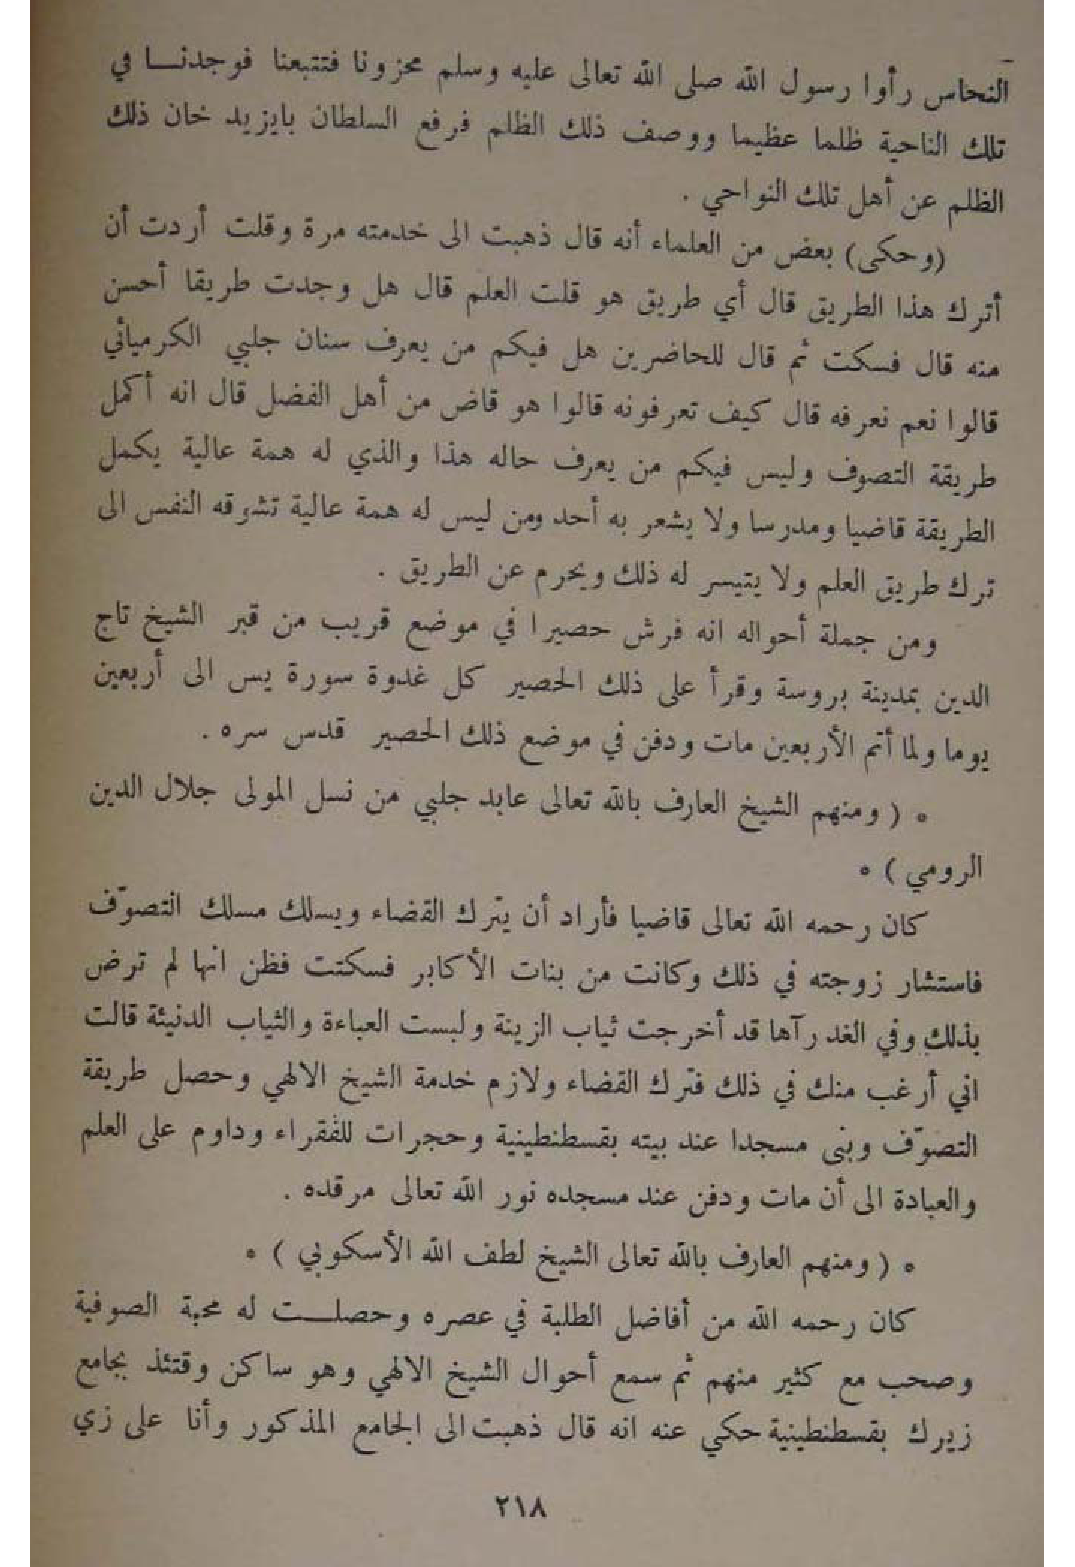 النحاس رأوا رسول الله صلى الله تعالى عليه وسلم محزونا فتتبعنا فوجدنا في
تلك الناحية ظلما عظيما ووصف ذلك الظلم فرفع السلطان بايزيد خان ذلك
الظلم عن أهل تلك النواحي .
(وحكى) بعض من العلماء أنه قال ذهبت الى خدمته مرة وقلت أردت أن
أترك هذا الطريق قال أي طريق هو قلت العلم قال هل وجدت طريقا أحسن
منه قال فسكت ثم قال للحاضرين هل فيكم من يعرف سنان جلبي الكرميائي
قالوا نعم نعرفه قال كيف تعرفونه قالوا هو قاض من أهل الفضل قال انه أكمل
طريقة التصوف وليس فيكم من يعرف حاله هذا والذي له همة عالية يكمل
الطريقة قاضيا ومدرسا ولا يشعر به أحد ومن ليس له همة عالية تشوقه النفس الى
ترك طريق العلم ولا يتيسر له ذلك ويحرم عن الطريق .
ومن جملة أحواله انه فرش حصيرا في موضع قريب من قبر الشيخ تاج
الدين بمدينة بروسة وقرأ على ذلك الحصير كل غدوة سورة يس الى أربعين
يوما ولما أتم الأربعين مات ودفن في موضع ذلك الحصير قدس سره .
* ( ومنهم الشيخ العارف بالله تعالى عابد جلبي من نسل المولى جلال الدين
الرومي ) *
كان رحمه الله تعالى قاضيا فأراد أن يترك القضاء ويسلك مسلك التصوّف
فاستشار زوجته في ذلك وكانت من بنات الأكابر فسكتت فظن انها لم ترض
بذلك وفي الغد رآها قد أخرجت ثياب الزينة ولبست العباءة والثياب الدنيئة قالت
اني أرغب منك في ذلك فترك القضاء ولازم خدمة الشيخ الالهي وحصل طريقة
التصوّف وبنى مسجدا عند بيته بقسطنطينية وحجرات للفقراء وداوم على العلم
والعبادة الى أن مات ودفن عند مسجده نور الله تعالى مرقده .
* ( ومنهم العارف بالله تعالى الشيخ لطف الله الأسكوبي ) *
كان رحمه الله من أفاضل الطلبة في عصره وحصلت له محبة الصوفية
وصحب مع كثير منهم ثم سمع أحوال الشيخ الالهي وهو ساكن وقتئذ بجامع
زيرك بقسطنطينية حكي عنه انه قال ذهبت الى الجامع المذكور وأنا على زي
٢١٨